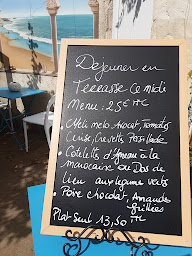 Dejeuner en
Terrasse Ce midi
Menu : 25€ TTC
• Méli melo, Avocat, Tomates
Cerise, Crevettes
• Cotelettes d'Agneau à la
marocaine ou Dos de
lieu aux légumes verts
• Poire chocolat, Amandes
grillées
Plat Seul 13,50 TTC